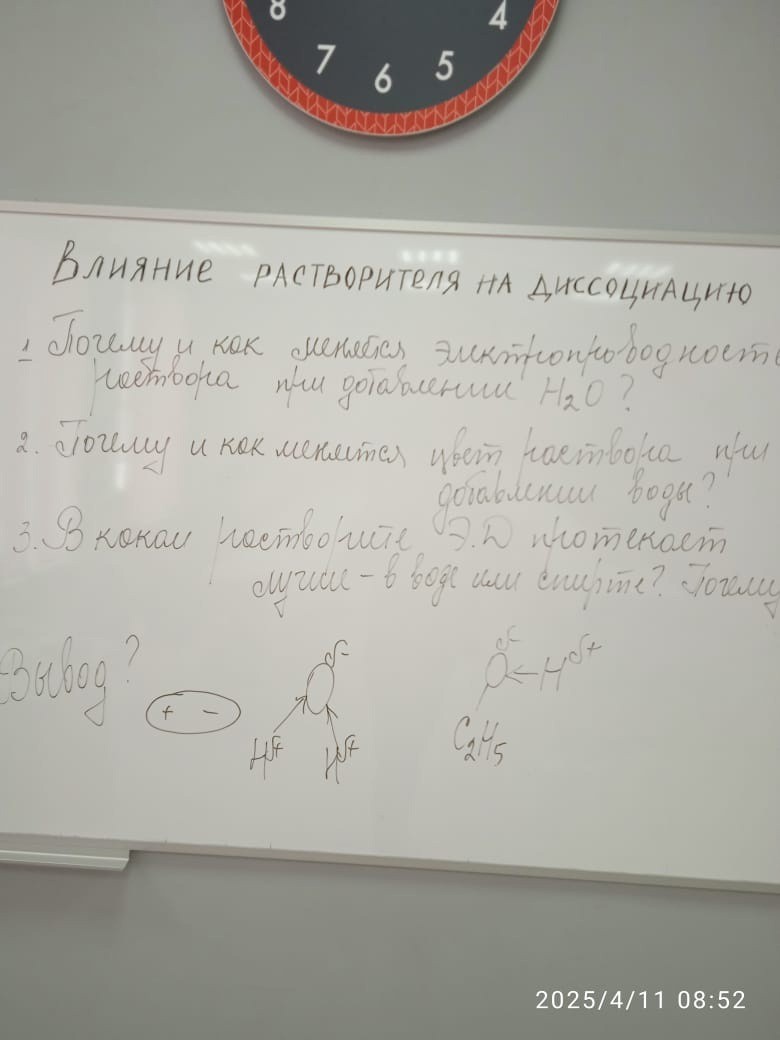 8 7 6 5 4
Влияние растворителя на диссоциацию
1 Почему и как меняется электропроводность
раствора при добавлении H₂O?
2. Почему и как меняется цвет раствора при
добавлении воды?
3. В каком растворите Э.Д протекает
лучше – в воде или спирте? Почему
Вывод?
+ −
O δ-
H δ+ H δ+
O δ- ← H δ+
C₂H₅
2025/4/11 08:52